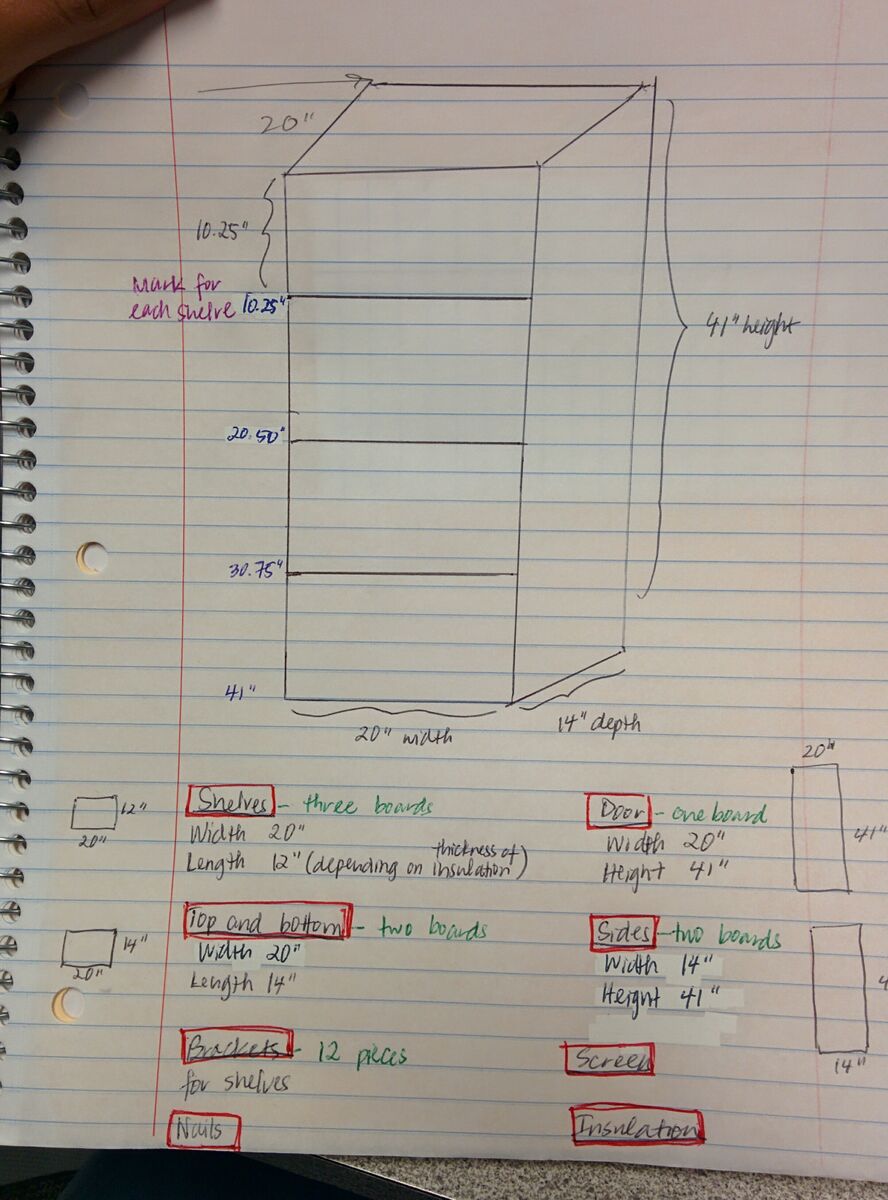 20"
10.25"
Mark for
each shelve 10.25"
41" height
20.50"
30.75"
41"
20" width
14" depth
12"
20"
Shelves - three boards
Width 20"
Length 12" (depending on thickness of insulation)
20"
41"
Door - one board
Width 20"
Height 41"
14"
20"
Top and bottom - two boards
Width 20"
Length 14"
Sides - two boards
Width 14"
Height 41"
4
14"
Brackets - 12 pieces
for shelves
Screen
Nails
Insulation